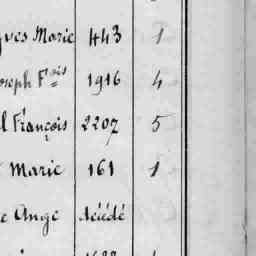 Yves Marie 443 1
Joseph F.ois 1916 4
l François 2207 5
Marie 161 1
e Ange décédé